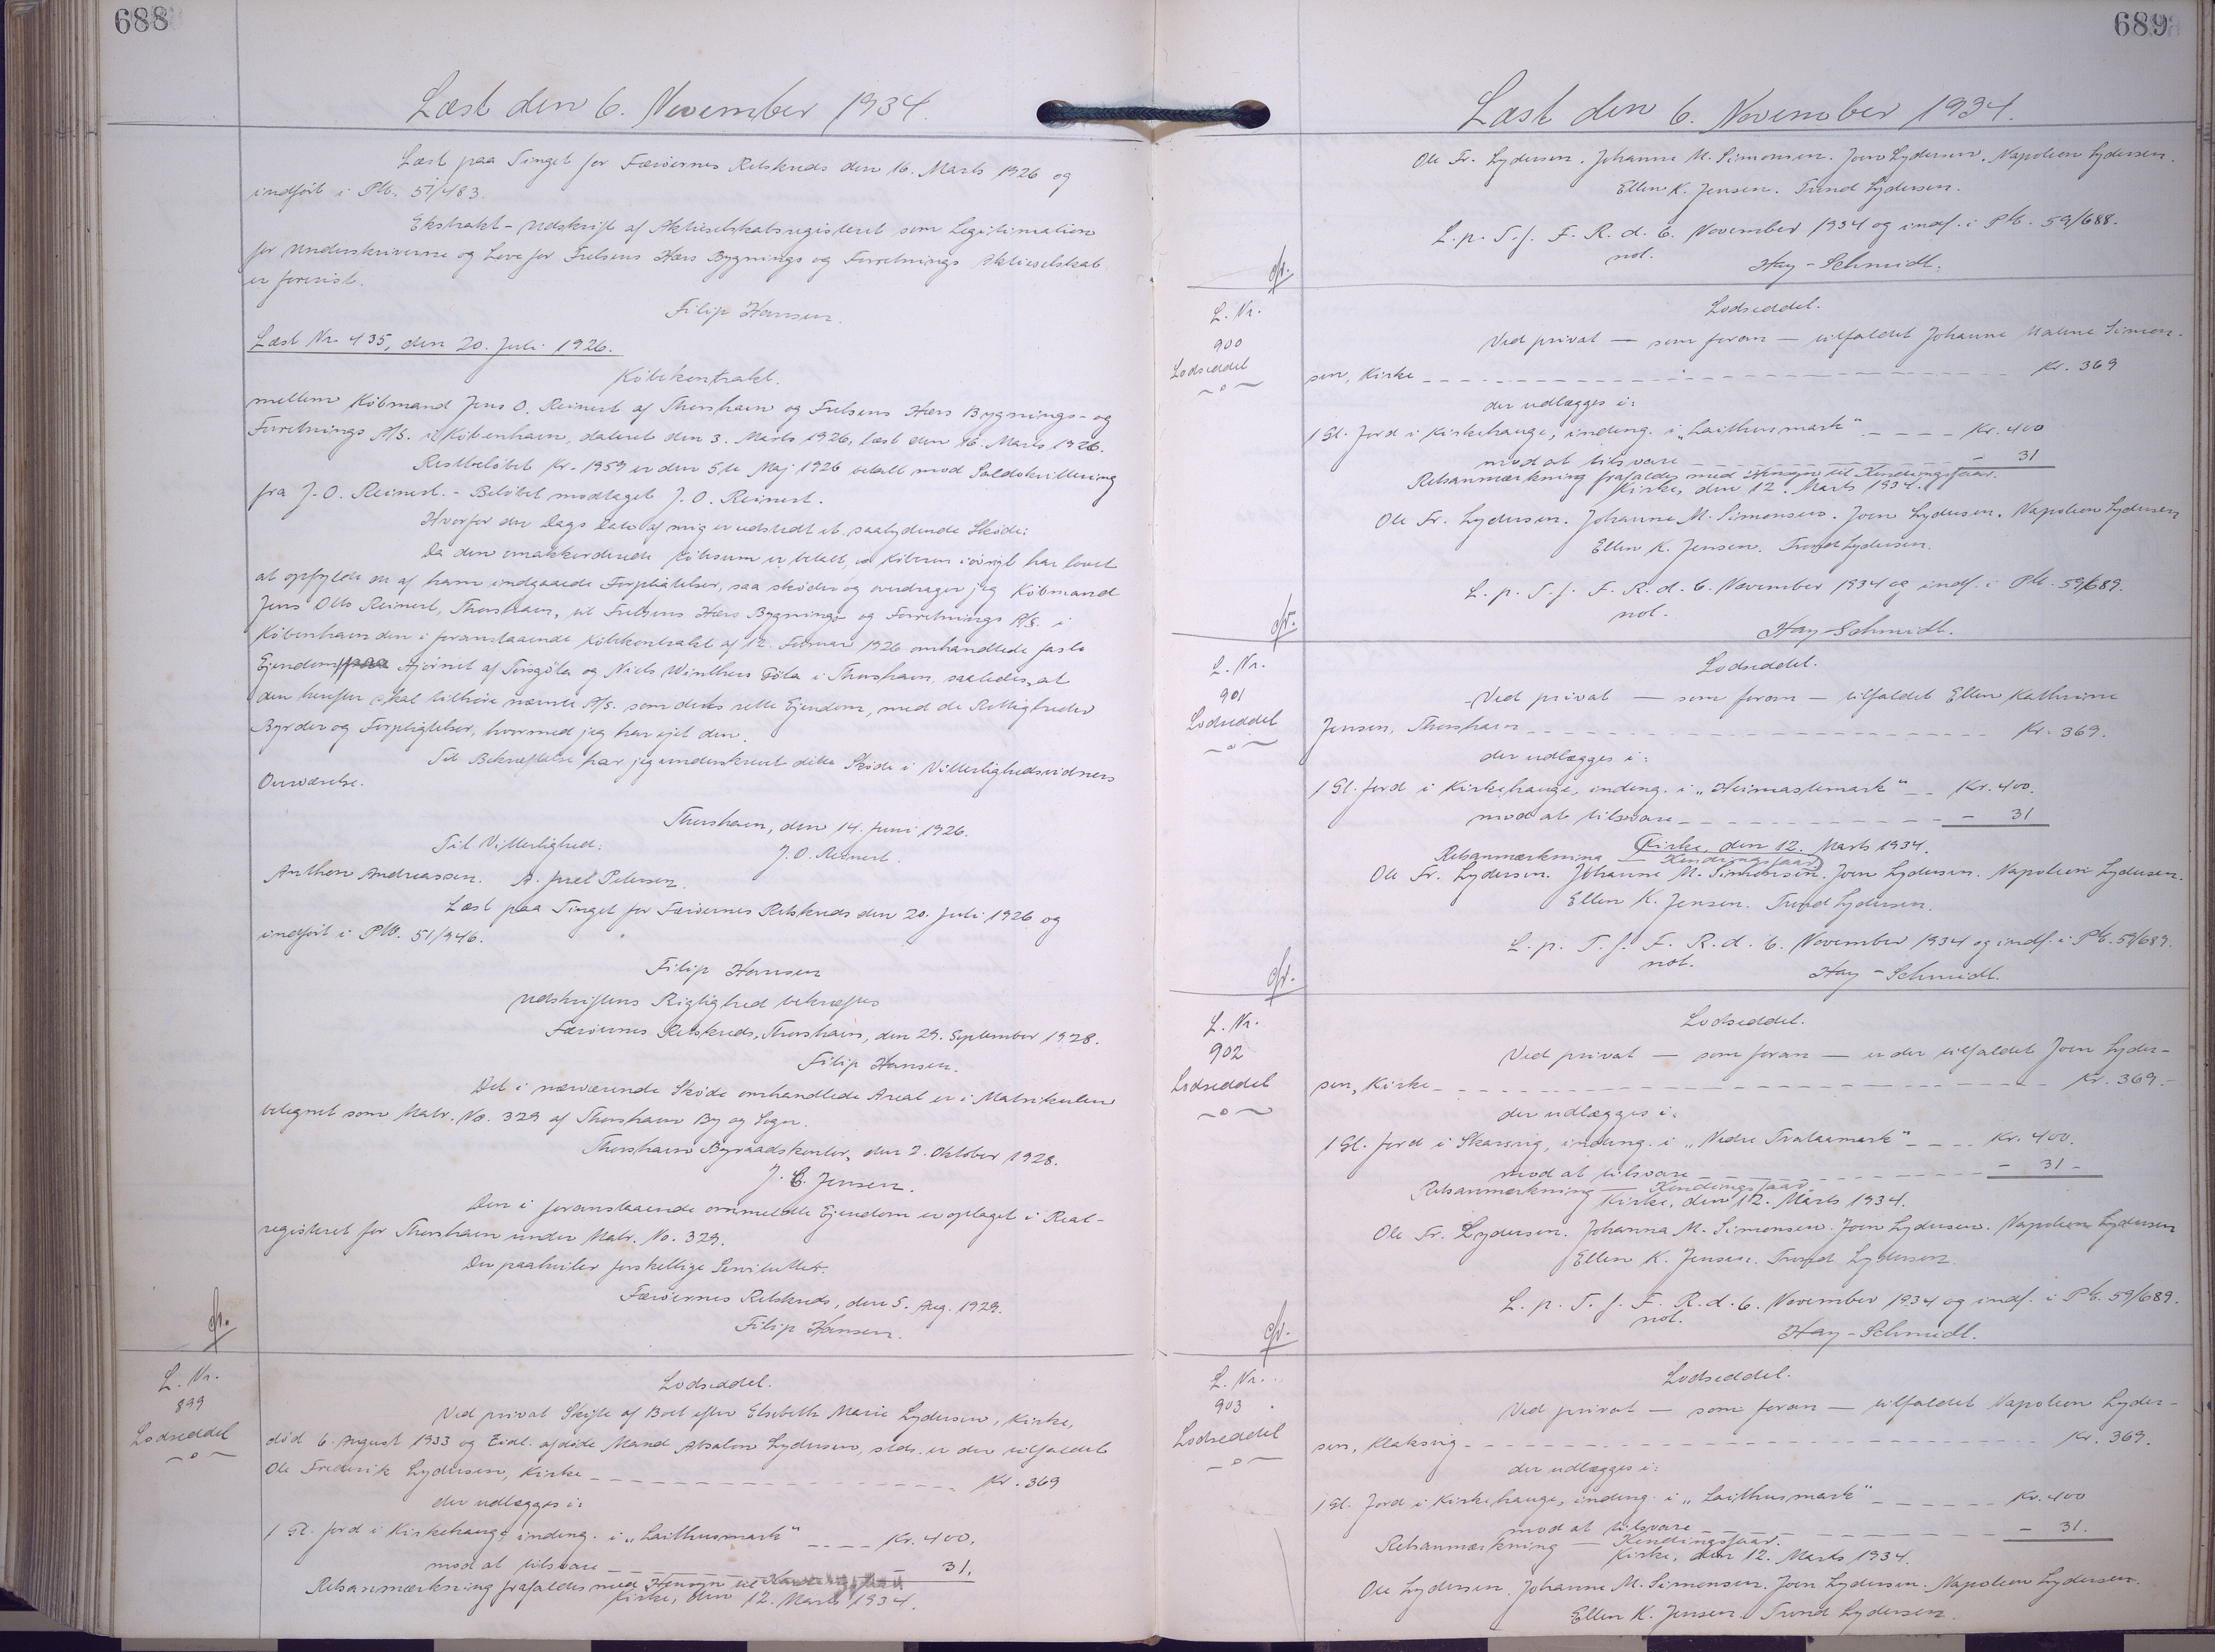 688
Læst den 6. November 1934.
Læst paa Tinget for Færøernes Retskreds den 16. Marts 1926 og
indført i Ptb. 51/483.
Ekstrakt-Udskrift af Aktieselskabsregisteret som Legitimation
for Underskriverne og Love for Frelsens Hærs Bygnings og Forretnings Aktieselskab
er forevist.
Filip Hansen.
Læst Nr. 435, den 20. Juli 1926.
Købekontrakt.
mellem Købmand Jens O. Reinert af Thorshavn og Frelsens Hærs Bygnings- og
Forretnings A/S. i København, dateret den 3. Marts 1926, læst den 16. Marts 1926.
Restbeløbet Kr. 1959 er den 5te Maj 1926 betalt mod Saldokvittering
fra J. O. Reinert. - Beløbet modtaget J. O. Reinert.
Hvorfor der Dags Dato af mig er udstedt et saalydende Skøde:
Da den omakkorderede Købesum er betalt, og Køberen iøvrigt har lovet
at opfylde de af ham indgaaede Forpligtelser, saa skøder og overdrager jeg Købmand
Jens Otto Reinert, Thorshavn, til Frelsens Hærs Bygnings og Forretnings A/S. i
København den i foranstaaende Købekontrakt af 12. Februar 1926 omhandlede faste
Ejendom paa Hjørnet af Torsgøta og Niels Winthers Gøta i Thorshavn, saaledes, at
den herefter skal tilhøre nævnte A/S. som dets rette Ejendom, med de Rettigheder
Byrder og Forpligtelser, hvormed jeg har ejet den.
Til Bekræftelse har jeg underskrevet dette Skøde i Vitterlighedsvidners
Overværelse.
Thorshavn, den 14. Juni 1926.
Til Vitterlighed: J. O. Reinert.
Anthon Andreassen. A. Juel Petersen.
Læst paa Tinget for Færøernes Retskreds den 20. Juli 1926 og
indført i Ptb. 51/946.
Filip Hansen
Udskriftens Rigtighed bekræftes
Færøernes Retskreds, Thorshavn, den 29. September 1928.
Filip Hansen.
Det i nærværende Skøde omhandlede Areal er i Matrikulen
betegnet som Matr. No. 329 af Thorshavn By og Sogn.
Thorshavn Byraadskontor, den 2. Oktober 1928.
J. C. Jensen.
Den i foranstaaende ommeldte Ejendom er optaget i Real-
registeret for Thorshavn under Matr. No. 329.
Der paahviler forskellige Servitutter.
Færøernes Retskreds, den 5. Aug. 1929.
Filip Hansen.
cfr.
L. Nr.
899
Lodseddel
Lodseddel.
Ved privat Skifte af Boet efter Elsebeth Marie Lydersen, Kirke,
død 6. August 1933 og tidl. afdøde Mand Absalon Lydersen, stds. er der tilfaldet
Ole Frederik Lydersen, Kirke Kr. 369
der udlægges i:
1 Gl. Jord i Kirkehauge, indeng. i „Laithusmark" Kr. 400.
mod at tilsvare 31.
Retsanmærkning frafaldes med Hensyn til
Kirke, den 12. Marts 1934.
689
Læst den 6. November 1934.
Ole Fr. Lydersen. Johanne M. Simonsen. Joen Lydersen. Napoleon Lydersen.
Ellen K. Jensen. Trond Lydersen.
L. p. T. f. F. R. d. 6. November 1934 og indf. i Ptb. 59/688.
not.
Hay-Schmidt.
cfr.
L. Nr.
900
Lodseddel
Lodseddel.
Ved privat — som foran — tilfaldet Johanne Malene Simon-
sen, Kirke Kr. 369
der udlægges i:
1 Gl. Jord i Kirkehauge, indeng. i „Laithusmark" Kr. 400
mod at tilsvare - 31
Retsanmærkning frafaldes med Hensyn til Kendingsfaar.
Kirke, den 12. Marts 1934.
Ole Fr. Lydersen. Johanne M. Simonsen. Joen Lydersen. Napoleon Lydersen
Ellen K. Jensen. Trond Lydersen.
L. p. T. f. F. R. d. 6. November 1934 og indf. i Ptb. 59/689.
not.
Hay-Schmidt.
cfr.
L. Nr.
901
Lodseddel
Lodseddel.
Ved privat — som foran — tilfaldet Ellen Kathrine
Jensen, Thorshavn Kr. 369.
der udlægges i:
1 Gl. Jord i Kirkehauge, indeng. i „Heimastemark" Kr. 400.
mod at tilsvare - 31
Kirke, den 12. Marts 1934.
Retsanmærkning — Kendingsfaar.
Ole Fr. Lydersen. Johanne M. Simonsen. Joen Lydersen. Napoleon Lydersen.
Ellen K. Jensen. Trond Lydersen.
L. p. T. f. F. R. d. 6. November 1934 og indf. i Ptb. 59/689.
not.
Hay-Schmidt.
cfr.
L. Nr.
902
Lodseddel
Lodseddel.
Ved privat — som foran — er der tilfaldet Joen Lyder-
sen, Kirke Kr. 369.-
der udlægges i:
1 Gl. Jord i Skarsvig, indeng. i „Nedre Tvalaamark" Kr. 400.
mod at tilsvare - 31 -
Retsanmærkning — Kendingsfaar.
Kirke, den 12. Marts 1934.
Ole Fr. Lydersen. Johanna M. Simonsen. Joen Lydersen. Napoleon Lydersen
Ellen K. Jensen. Trond Lydersen
L. p. T. f. F. R. d. 6. November 1934 og indf. i Ptb. 59/689.
not.
Hay-Schmidt.
cfr.
L. Nr.
903
Lodseddel
Lodseddel.
Ved privat — som foran — tilfaldet Napoleon Lyder-
sen, Klaksvig Kr. 369.
der udlægges i:
1 Gl. Jord i Kirkehauge, indeng. i „Laithusmark" Kr. 400
mod at tilsvare - 31.
Retsanmærkning — Kendingsfaar.
Kirke, den 12. Marts 1934.
Ole Lydersen. Johanne M. Simonsen. Joen Lydersen. Napoleon Lydersen.
Ellen K. Jensen. Trond Lydersen.